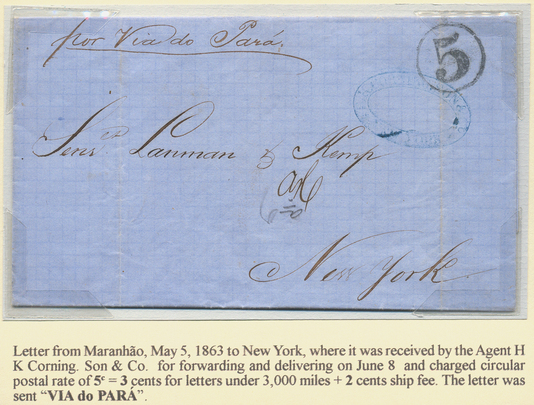 por Via do Pará,
5
Senres Lanman & Kemp
New York
Letter from Maranhão, May 5, 1863 to New York, where it was received by the Agent H
K Corning. Son & Co. for forwarding and delivering on June 8 and charged circular
postal rate of 5c = 3 cents for letters under 3,000 miles + 2 cents ship fee. The letter was
sent "VIA do PARÁ".